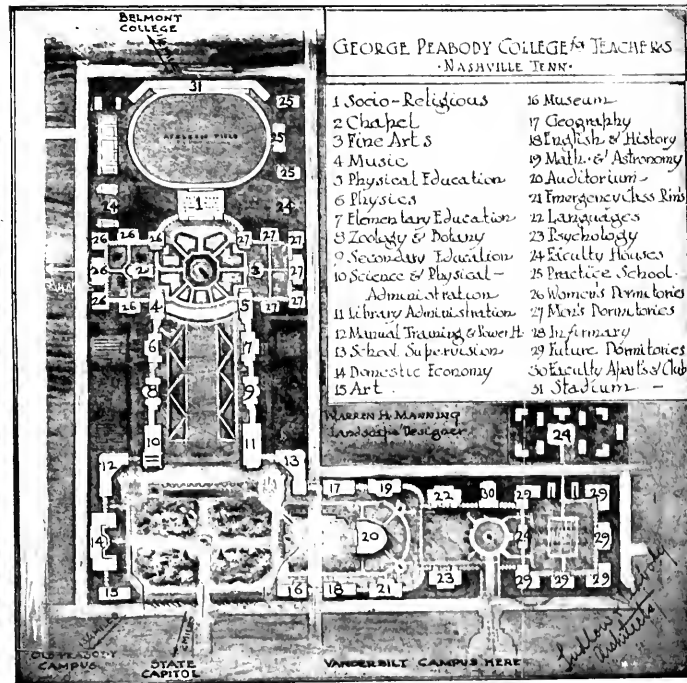 BELMONT
COLLEGE
GEORGE PEABODY COLLEGE for TEACHERS
·NASHVILLE TENN·
1 Socio-Religious
2 Chapel
3 Fine Arts
4 Music
5 Physical Education
6 Physics
7 Elementary Education
8 Zoology & Botany
9 Secondary Education
10 Science & Physical-
Administration
11 Library Administration
12 Manual Training & Power H.
13 School Supervision
14 Domestic Economy
15 Art
16 Museum
17 Geography
18 English & History
19 Math. & Astronomy
20 Auditorium-
21 Emergency Class Rms
22 Languages
23 Psychology
24 Faculty Houses
25 Practice School
26 Women's Dormitories
27 Men's Dormitories
28 Infirmary
29 Future Dormitories
30 Faculty Apart's & Club
31 Stadium -
31
25
ATHLETIC FIELD
25
25
24
1
24
26 26 26 27 27 27
26 2 3 27
26 26 27 27
4 5
6 7
8 9
10 11
WARREN H. MANNING
Landscape Designer
24
12 13
17 19 22 30 29 29
14 20 24 29
15 16 18 21 23 29 29 29
OLD PEABODY
CAMPUS
STATE
CAPITOL
VANDERBILT CAMPUS HERE
Ludlow & Peabody
Architects